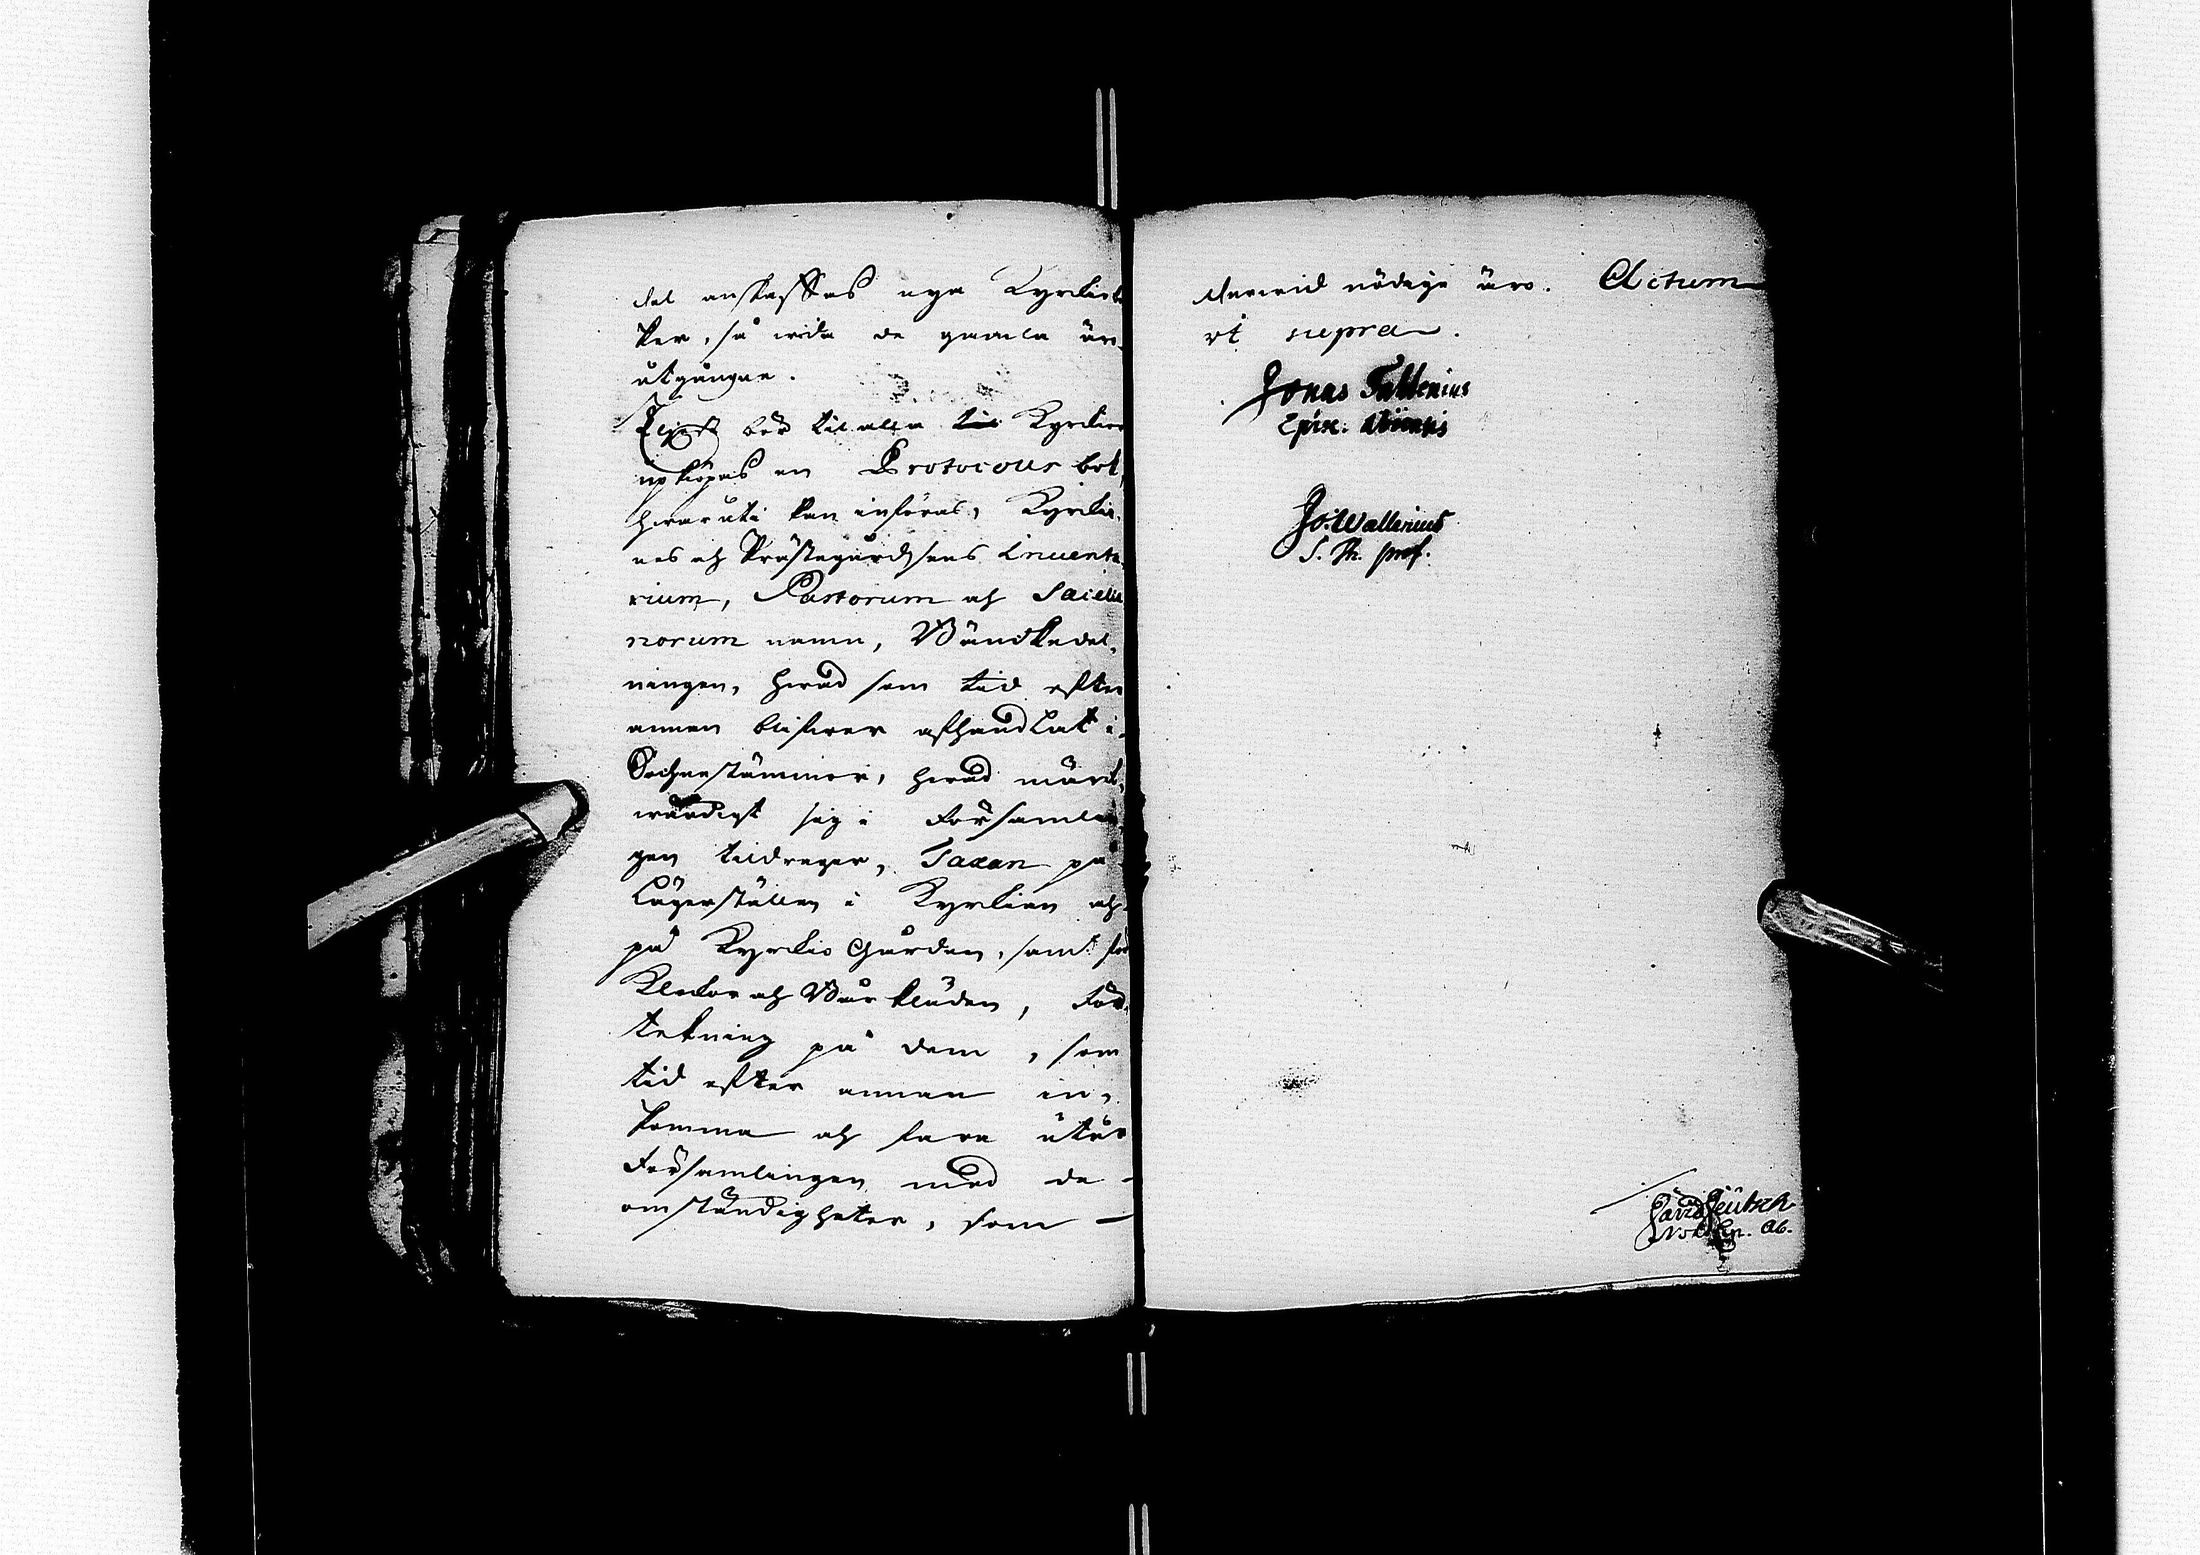 del anskaffas nya Kyrkiobö
ker, så wida de gamla äro
utgångne.
bör til alla Kyrkior
upköpas en Protocolls bok,
hwaruti kan införas, Kyrkio
nes och Prästegårdsens Inventa
rium, Pastorum och Sacella
norum namn,
ningen, hwad som tid efter
annan blifwer afhandlat i
Sochnestämmor, hwad märk
wärdigt sig i Församlin
gen tilldrager, Taxan på
Lägerställen i Kyrkian och
på Kyrkio Gården, samt för
Klockor och Bårkläden, för
tekning på dem, som
tid efter annan in
komma och fara utur
Församlingen med de
omständigheter, som
derwid nödige äro. Actum
ut supra.
Jonas Fallenius
Episc. Aboensis
Jo: Wallenius
S. Th. prof.
David Deutsch
Not. Ab.